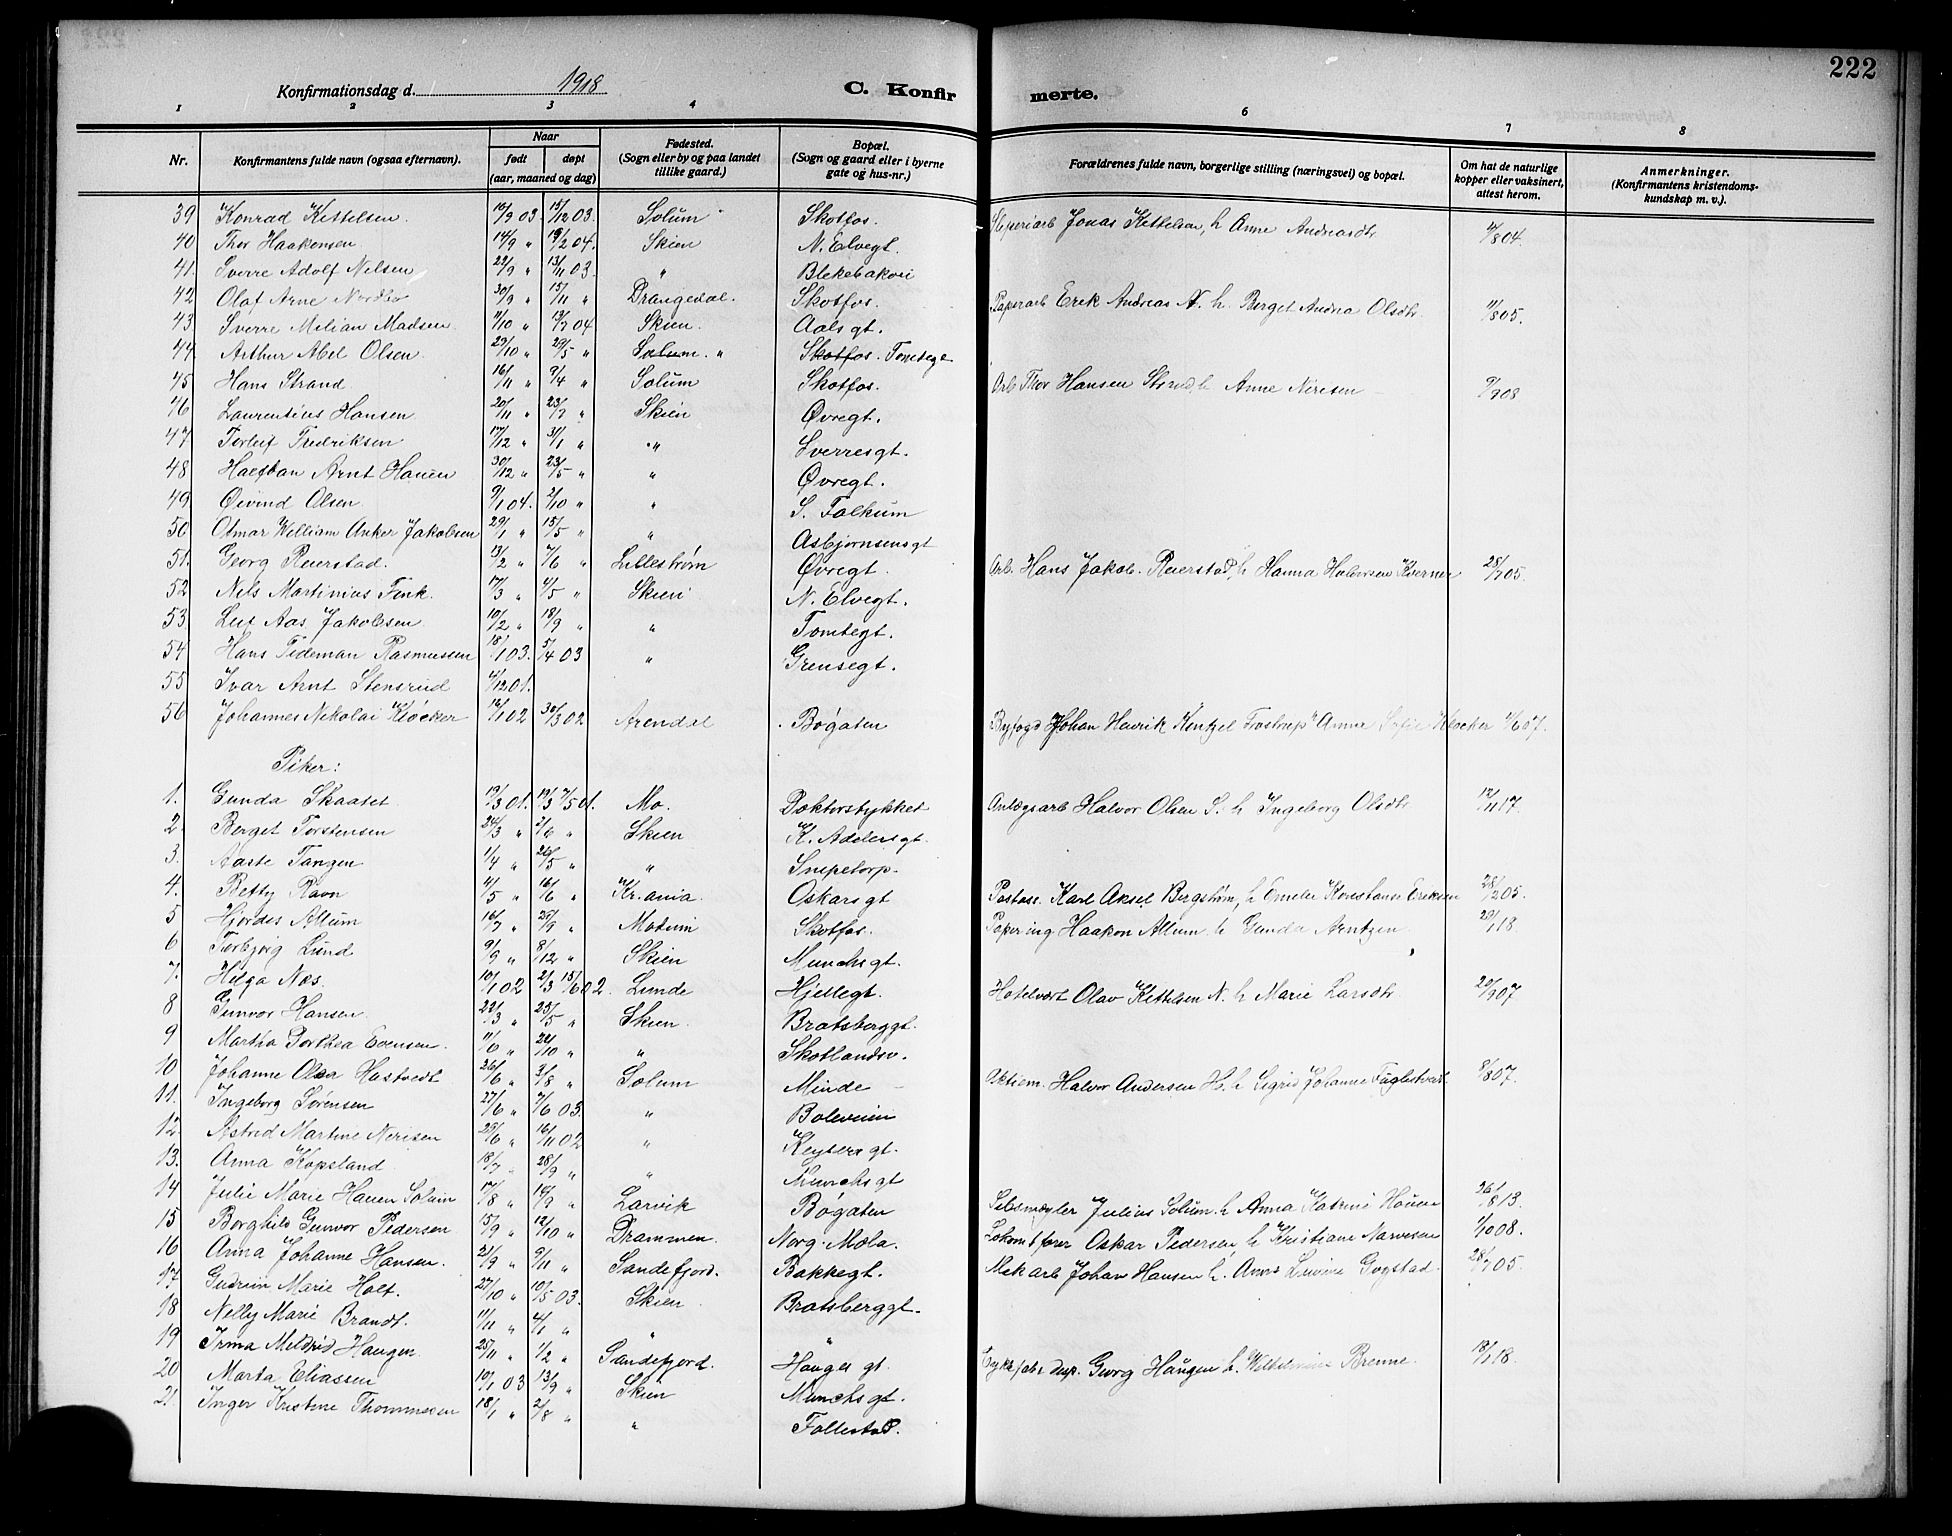 222
Konfirmationsdag d. 1918 C. Konfirmerte.
1 2 3 4 5 6 7 8
Nr. Konfirmantens fulde navn (ogsaa efternavn). Naar født døpt (aar, maaned og dag) Fødested. (Sogn eller by og paa landet tillike gaard.) Bopæl. (Sogn og gaard eller i byerne gate og hus-nr.) Forældrenes fulde navn, borgerlige stilling (næringsvei) og bopæl. Om hat de naturlige kopper eller vaksinert, attest herom. Anmerkninger. (Konfirmantens kristendomskundskap m. v.).
39 Konrad Kittelsen. 16/9 03. 15/12 03. Solum Skotfos. Jonas Kittelsen, h Anne Andreasdtr 4/8 04.
40 Thor Haakensen 14/9 " 19/2 04. Skien N. Elvegt.
41. Sverre Adolf Nilsen 22/9 " 13/11 03. " Blekebakvei
42 Olaf Arne Nordbø 30/9 " 15/11 " Drangedal. Skotfos. Paperarb Erik Andreas N. h. Berget Andrea Olsdtr. 11/8 05.
43 Sverre Milian Madsen 11/10 " 19/7 04 Skien. Aalsgt.
44 Arthur Abel Olsen. 29/10 " 29/5 " Solum. " Skotfos. Tomtegt
45 Hans Strand. 16/11 " 9/4 " Solum Skotfos. Arb Thor Hansen Strand h Anne Nirisen 9/9 08
46 Laurentius Hansen 20/11 " 23/7 " Skien Øvregt.
47 Torleif Fredriksen 17/12 " 31/1 " " Sverresgt.
48 Halfdan Arnt Hansen 30/12 " 23/5 " " Øvregt.
49 Øivind Olsen 9/1 04. 2/10 " " S. Falkum
50 Otmar William Anker Jakobsen 29/1 " 15/5 " " Asbjørnsensgt
51. Georg Reierstad. 13/2 " 7/6 " Lillestrøm Øvregt. Arb. Hans Jakob. Reierstad, h Hanna Halvorsen Kverner 28/7 05.
52 Nils Martinius Fink. 17/3 " 4/5 " Skien N. Elvegt.
53 Leif Aas Jakobsen 10/2 " 18/9 " " Tomtegt.
54 Hans Tideman Rasmussen 18/1 03. 5/4 03 " Grensegt.
55 Ivar Arnt Stensrud 4/12 01.
56 Johannes Nikolai Kløcker 16/1 02 30/3 02 Arendal Bøgaten Byfogd Johan Henrik Kentzel Frostrup h Anna Sofie Kløcker 4/6 07.
Piker:
1. Gunda Skaatet 19/3 01. 19/3 7/5 01. Mo. Doktorstykket Anlægsarb Halvor Olsen S. h Ingeborg Olsdtr 12/11 17.
2. Berget Torstensen 24/3 " 2/6 " Skien K. Adelersgt.
3. Aaste Tangen 1/4 " 26/5 " " Snipetorp.
4. Betty Ravn 4/5 " 16/6 " Kr.ania. Oskarsgt Karl Aksel Bergstrøm, h Emelie Konstanse Eriksen 28/2 05.
5 Hjørdis Allum 16/7 " 25/9 " Modum Skotfos. Papering Haakon Allum. h Gunda Arntzen 29/1 18.
6 Torbjørg Lund 9/9 " 8/12 " Skien Munchsgt.
7. Helga Næs. 10/1 02 2/3 15/6 02. Lunde Hjellegt. Hotelvært Olav Kittilsen N. h Marie Larsdtr 20/9 07
8 Gunvor Hansen. 22/3 " 25/5 " Skien. Bratsberggt.
9 Martha Dorthea Evensen. 11/6 " 22/10 " " Skotlandsv.
10 Johanne Olea Hastvedt 26/6 " 3/8 " Solum Minde Halvor Andersen H. h Sigrid Johanne Fuglestvedt. 8/8 07.
11. Ingeborg Sørensen 27/6 " 7/6 03. " Boleveien
12. Astrid Martine Nirisen 25/6 " 16/11 02 " Keysersgt.
13. Anna Kopsland 18/7 " 28/9 " " Munchsgt
14 Julie Marie Hauen Solum 17/8 " 19/9 " Larvik Bøgaten Julius Solum. h Anna Katrine Hauen 26/8 13.
15 Borghild Gunvor Pedersen 15/9 " 12/10 " Drammen. Norg. Mola. Lokomtfører Oskar Pedersen, h Kristiane Narvesen 1/10 08.
16 Anna Johanne Hansen. 21/9 " 9/11 " Sandefjord. Bakkegt. Mek arb Johan Hansen h. Anna Lovine Gogstad. 28/7 05.
17 Gudrun Marie Holt. 27/10 " 10/5 03. Skien Bratsberggt.
18 Nelly Marie Brandt. 11/11 " 4/1 " " "
19 Irma Mildrid Haugen. 25/11 " 1/2 " Sandefjord. Haugesgt. Georg Haugen h. Wilhelmine Brenne. 18/1 18.
20 Marta Eliassen 10/1 03 13/9 " Skien Munchsgt.
21. Inger Kristine Thommesen 18/1 " 2/8 " " Follestad.